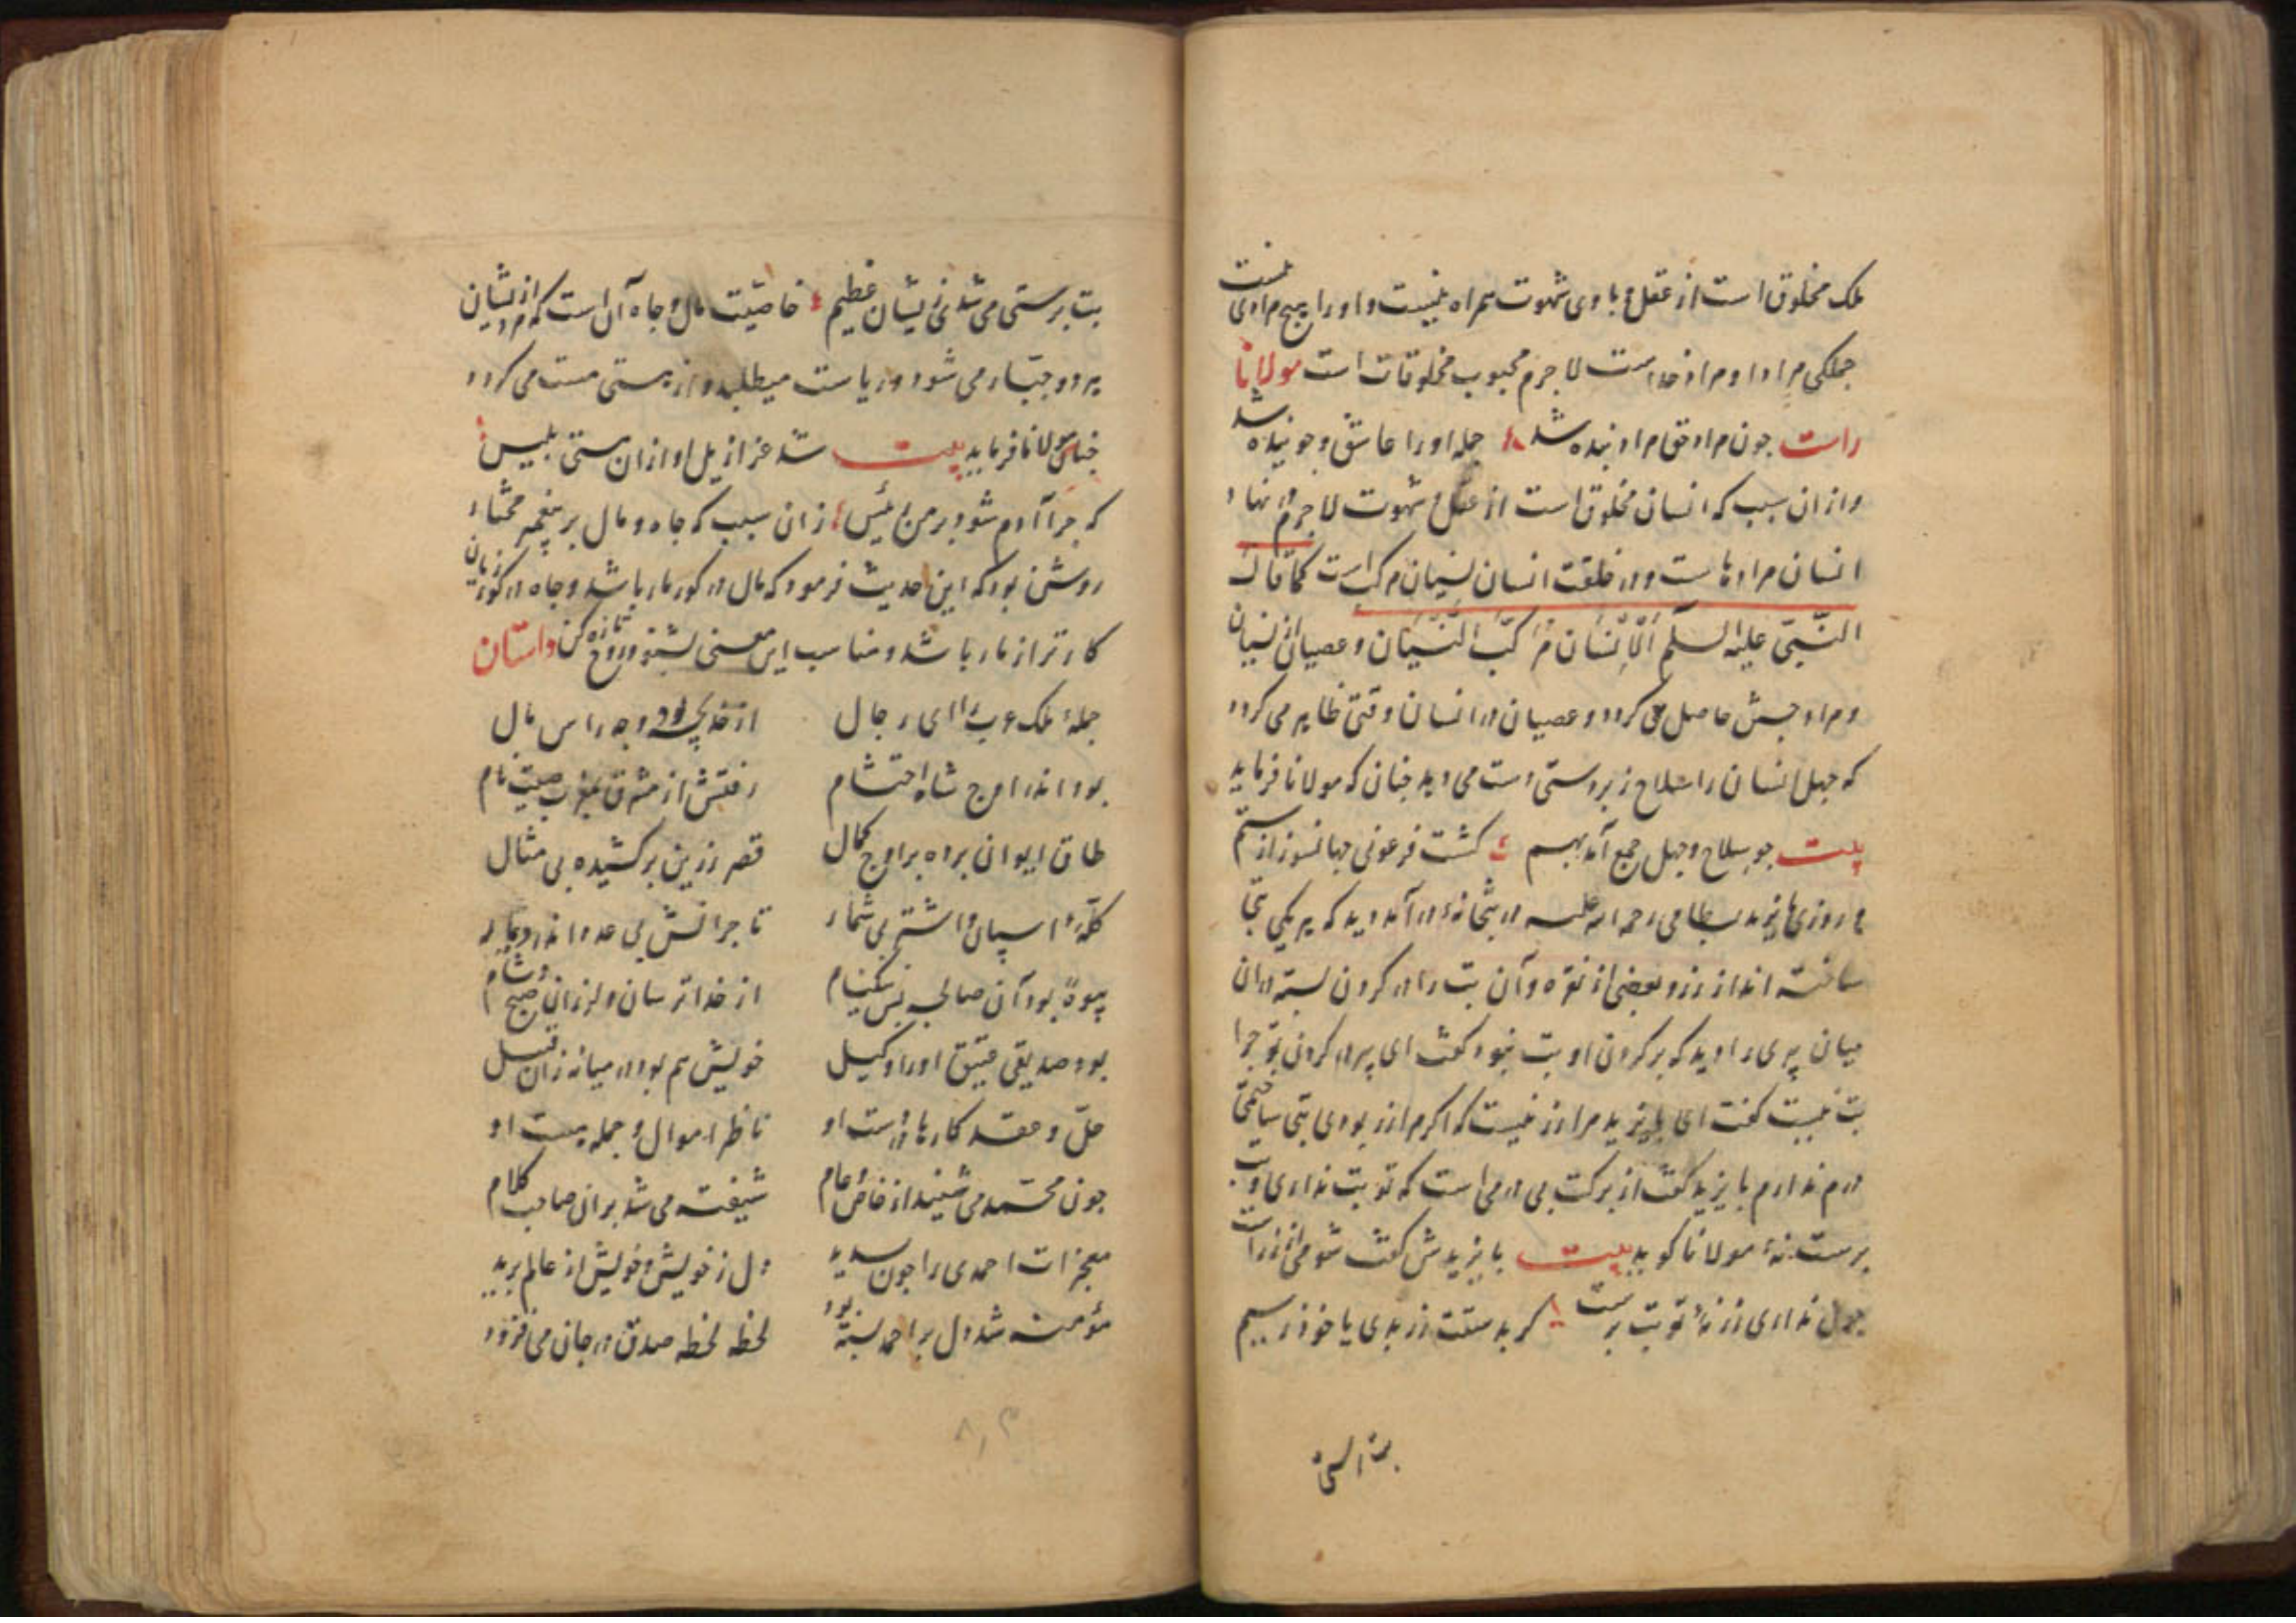 ملک مخلوق است از عقل و با وی شهوت همراه نیست و او را هیچ مرادی نیست
جملکی مراد او مراد خداست لا جرم محبوب مخلوقات است مولانا
راست جون مراد حق مراد بنده شد جمله او را عاشق و جوینده شد
و از ان سبب که انسان مخلوق است از عقل و شهوت لا جرم در نهاد
انسان مرادهاست و در خلقت انسان نسیان مرکب است کما قال
النّبیّ علیه السلم اَلْاِنْسَان مُرَکَّبُ النّسْیَان و عصیان از نسیان
و مراد جستن حاصل می کردد و عصیان در انسان وقتی ظاهر می کردد
که جهل انسان را سلاح زبردستی است می دهد جنان که مولانا فرماید
بیت جو سلاح و جهل جمع آمد بهم کشت فرعونی جهانسوز از ستم
و روزی بایزید بسطامی رحمة الله علیه در بتخانهٔ در آمد دید که هر یکی بتی
ساخته اند از زر و بعضی از نقره و آن بت را در کردن بسته در ان
میان پیری را دید که بر کردن او بت نبود کفت ای پیر در کردن تو جرا
بت نیست کفت ای بایزید مرا زر نیست که اکر مرا زر بودی بتی ساختمی
درم ندارم بایزید کفت از برکت بی درمی است که تو بت نداری و بت
پرست نهٔ مولانا کوید بیت بایزیدش کفت شومی از زر است
جون نداری زر نهٔ تو بت پرست کر بدستت زر بدی یا خوذ ز سیم
بت پرستی
بت پرستی می شدی زیشان عظیم خاصیّت مال و جاه آن است که مرد از نشان
برد و جبّار می شود و ریاست میطلبد و از هستی مست می کردد
جنانک مولانا فرماید بیت شد عزازیل او از ان هستی بلیس
که جرا آدم شود بر من رئیس زان سبب که جاه و مال بر پیغمبر مختار
روشن بود که این حدیث فرمود که مال در کور مار باشد و جاه در کور زیان
کارتر از مار باشد و مناسب این معنی بشنو و روح تازه کن داستان
جملهٔ ملک عرب را ای رجال از خدیجه بود وجه راس مال
بود اندر اوج شاه احتشام رفتش از مشرق بمغرب صیت نام
طاق ایوان برده بر اوج کمال قصر زرین برکشیده بی مثال
کلّهٔ اسپان و اشتر بی شمار تاجرانش بی عدد اندر دیار
بیوهٔ بود آن صالحه بس نیکنام از خدا ترسان و لرزان صبح و شام
بود صدیقی عتیق او را وکیل خویش هم بود در میانه زان قبیل
حلّ و عقد کارها در دست او ناظر اموال و جمله هست او
جون محمّد می شنید از خاص و عام شیفته می شد بران صاحب کلام
معجزات احمدی را جون بدید دل ز خویش و خویش از عالم برید
مؤمنه شد دل بر احمد بسته بود لحظه لحظه صدق در جان می فزود